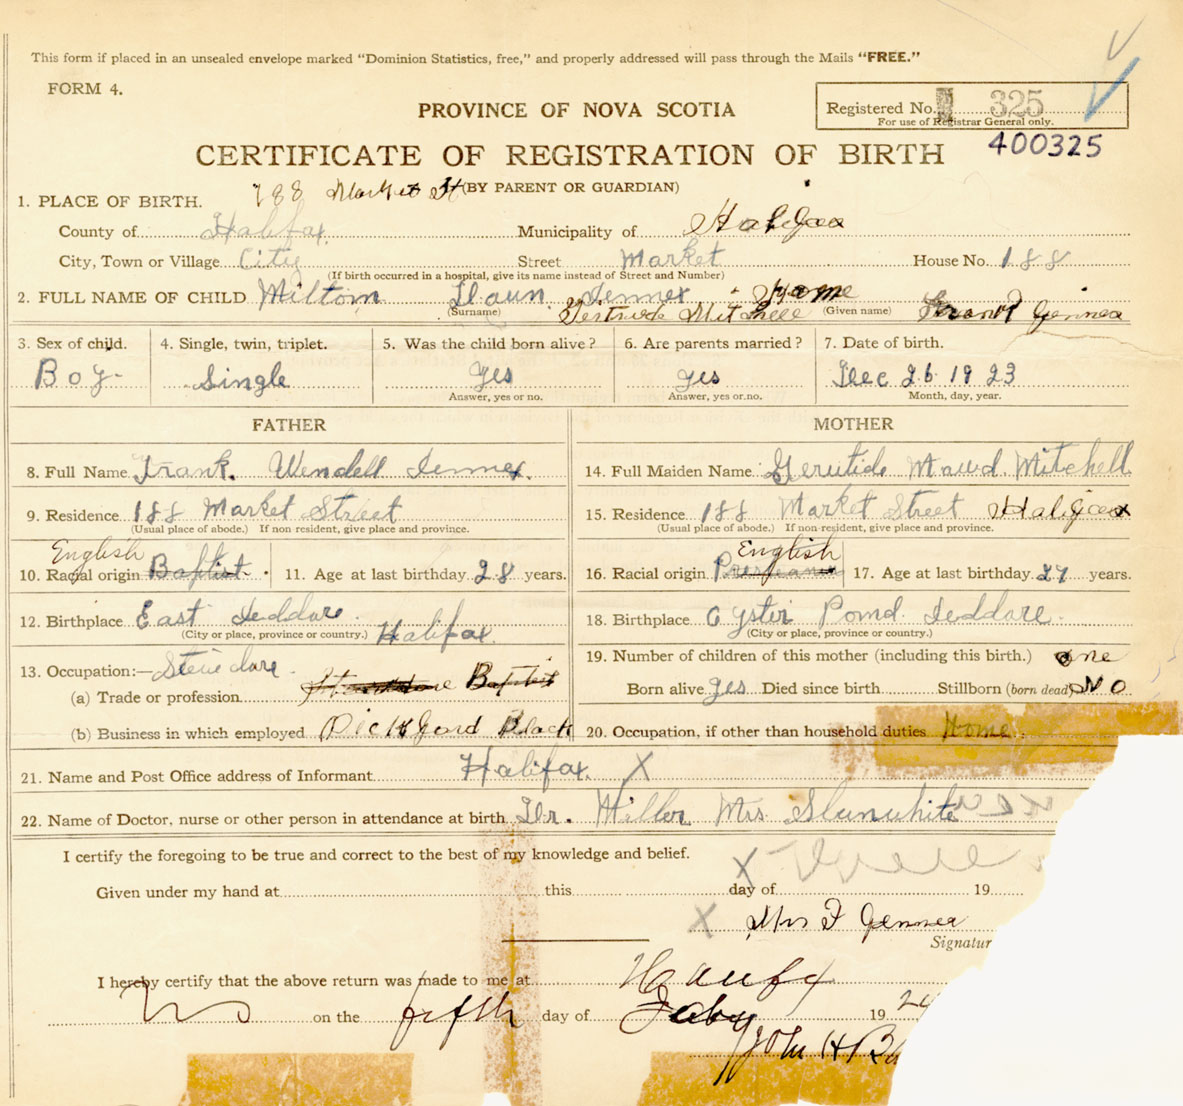 This form if placed in an unsealed envelope marked "Dominion Statistics, free," and properly addressed will pass through the Mails "FREE."
FORM 4.
PROVINCE OF NOVA SCOTIA
Registered No. 325
For use of Registrar General only.
400325
CERTIFICATE OF REGISTRATION OF BIRTH
188 Market St (BY PARENT OR GUARDIAN)
1. PLACE OF BIRTH.
County of Halifax Municipality of Halifax
City, Town or Village City Street Market House No. 188
(If birth occurred in a hospital, give its name instead of Street and Number)
2. FULL NAME OF CHILD Miltom Jennex Home
(Surname) Gertrude Mitchell (Given name) Frank Gennex
3. Sex of child. 4. Single, twin, triplet. 5. Was the child born alive? 6. Are parents married? 7. Date of birth.
Boy- Single yes yes Dec 26 1923
Answer, yes or no. Answer, yes or no. Month, day, year.
FATHER MOTHER
8. Full Name Frank. Wendell Jennex. 14. Full Maiden Name Gerutide Mawd. Mitchell
9. Residence 188 Market Street 15. Residence 188 Market Street Halifax
(Usual place of abode.) If non resident, give place and province. (Usual place of abode.) If non-resident, give place and province.
English English
10. Racial origin Baptist. 11. Age at last birthday 28 years. 16. Racial origin 17. Age at last birthday 27 years.
12. Birthplace East Jeddore. Halifax. 18. Birthplace Oyster Pomd. Jeddore.
(City or place, province or country.) (City or place, province or country.)
13. Occupation:— Stevedare. 19. Number of children of this mother (including this birth.) one
(a) Trade or profession Baptist Born alive yes Died since birth Stillborn (born dead) No
(b) Business in which employed Pickford Black 20. Occupation, if other than household duties Home.
21. Name and Post Office address of Informant Halifax. X
22. Name of Doctor, nurse or other person in attendance at birth Dr. Miller Mrs Slunwhite
I certify the foregoing to be true and correct to the best of my knowledge and belief.
Given under my hand at this X day of 19
X Mrs F Gennex
Signatur
I hereby certify that the above return was made to me at
on the fifth day of 19 24
John H B